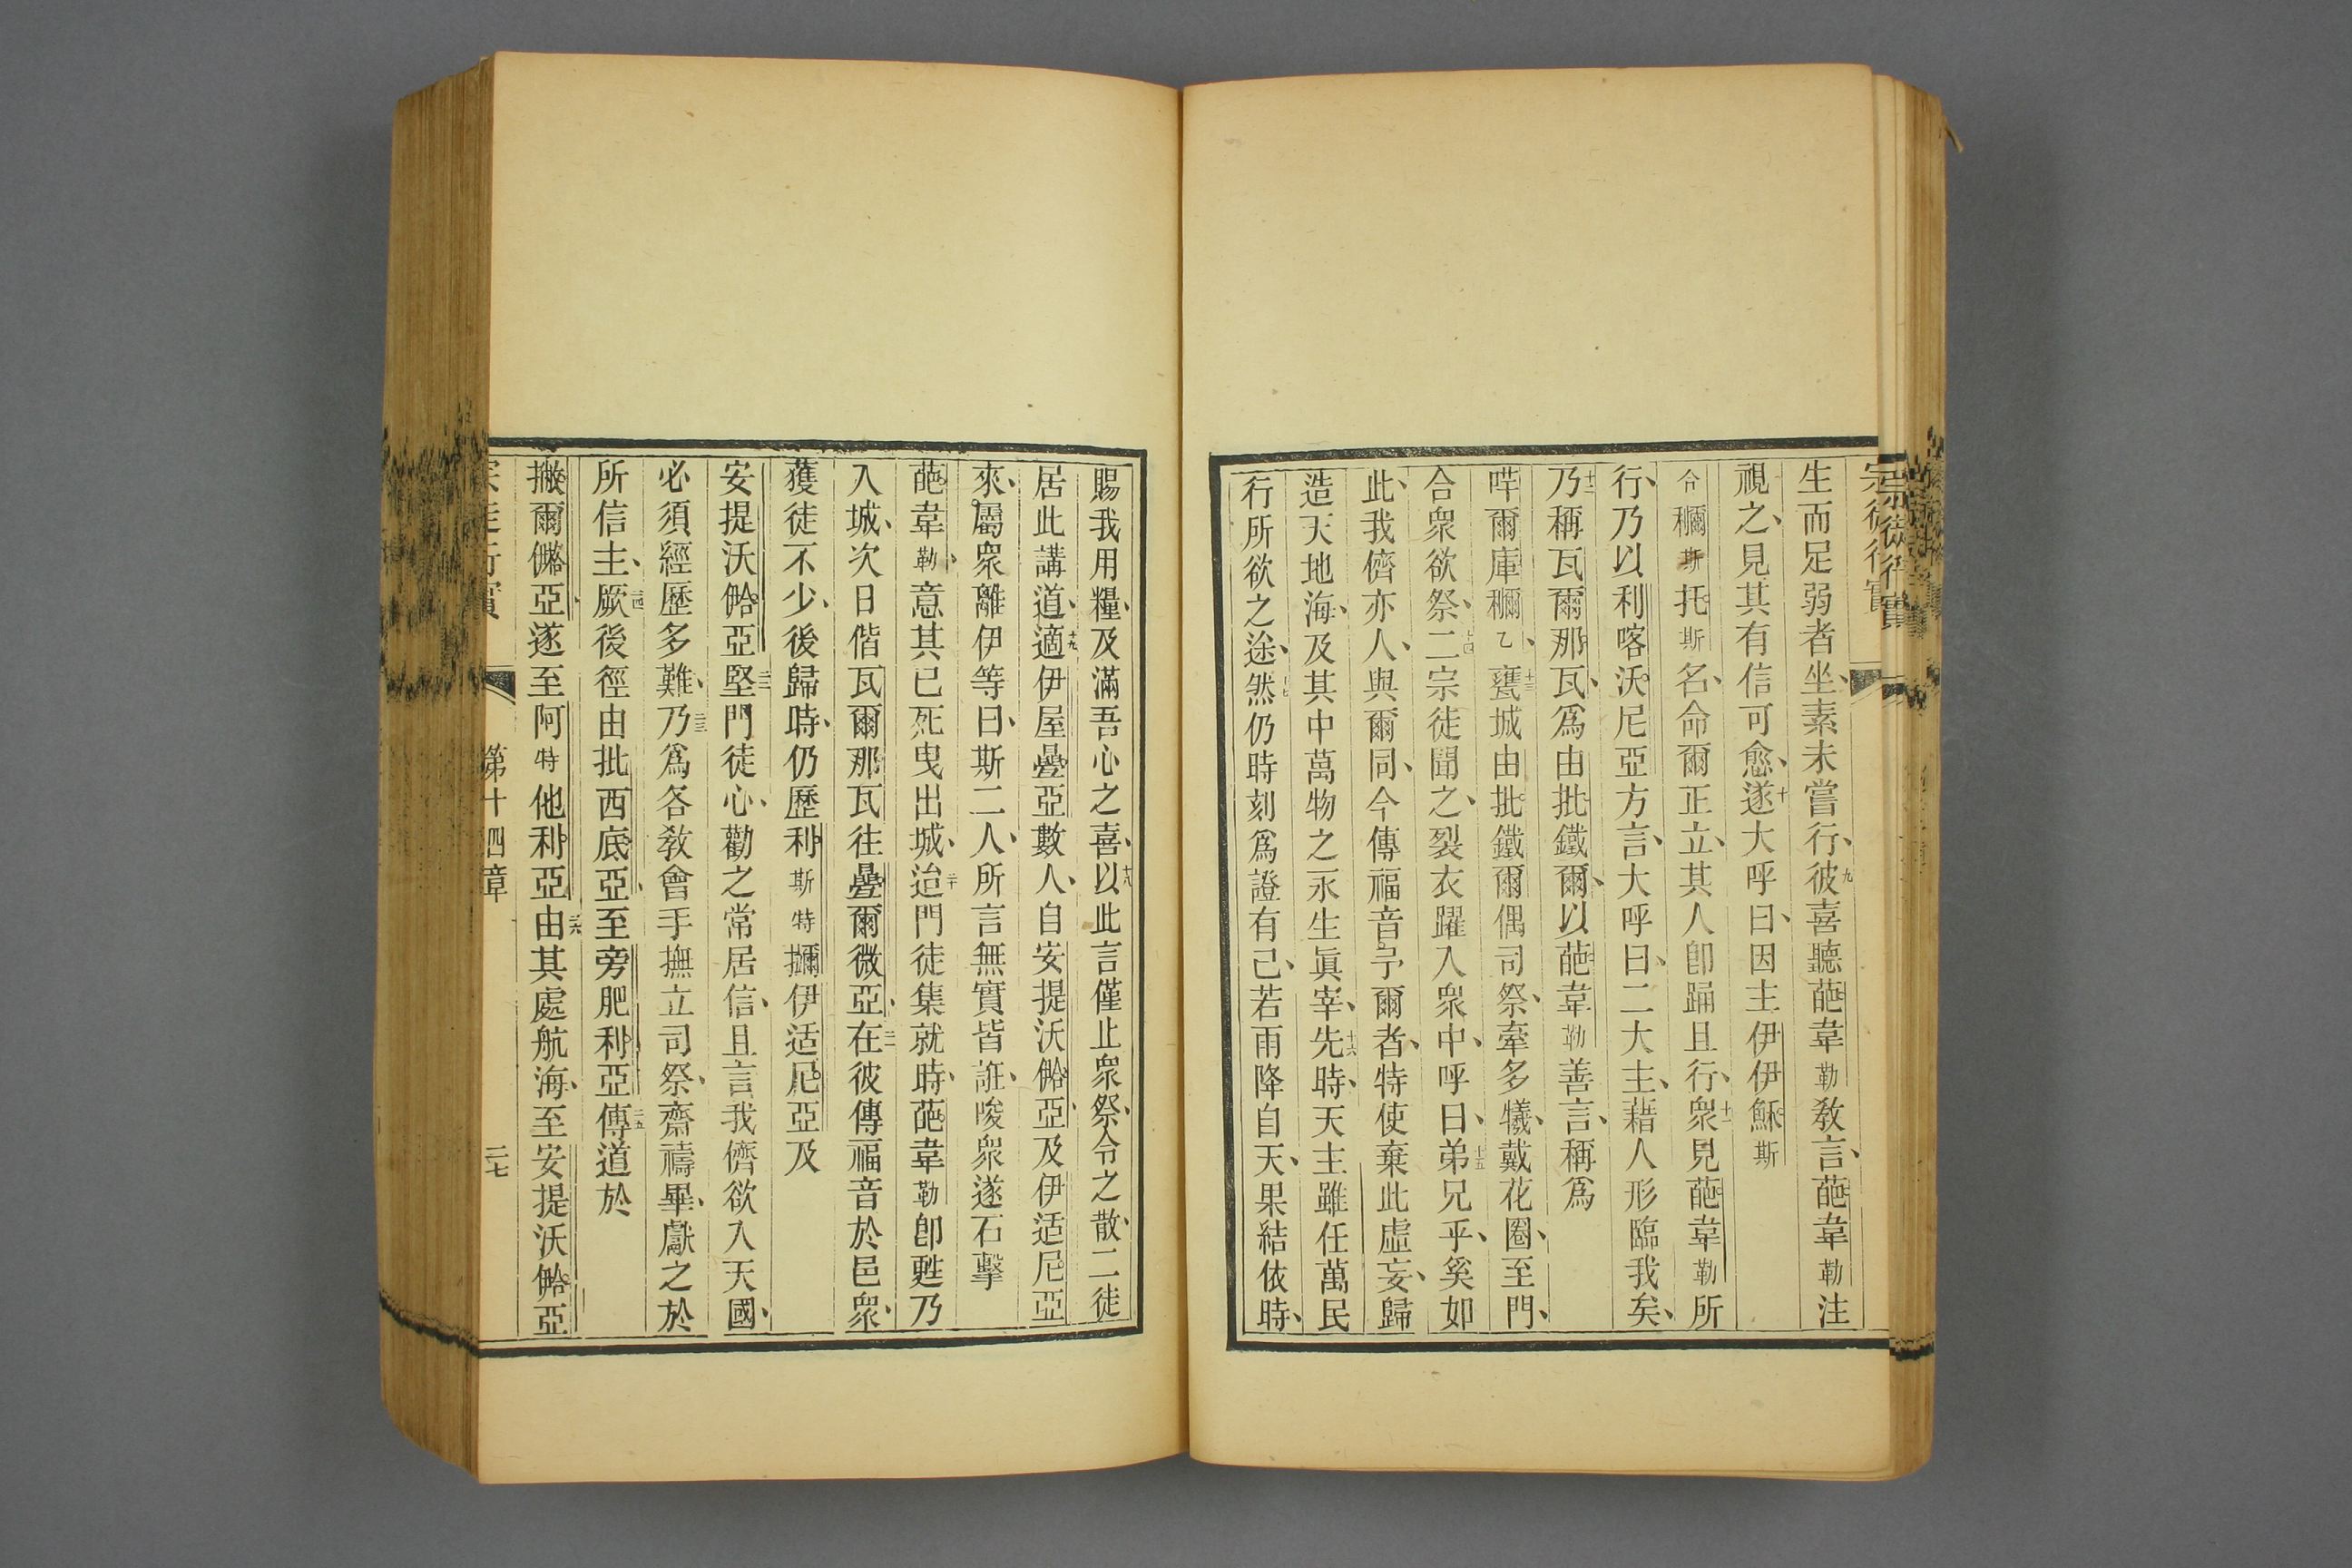 宗徒行實
生而足弱者坐、素未嘗行、九彼喜聽葩韋勒敎言、葩韋勒注
視之、見其有信可愈、十遂大呼曰、因主伊伊穌斯
合穪斯托斯名、命爾正立、其人卽踊且行、十一衆見葩韋勒所
行、乃以利喀沃尼亞方言、大呼曰、二大主、藉人形臨我矣、
十二乃稱瓦爾那瓦、爲由批鐵爾、以葩韋勒善言、稱爲
哶爾庫穪乙、十三甕城由批鐵爾偶司祭、牽多犧、戴花圈、至門、
合衆欲祭、十四二宗徒聞之、裂衣躍入衆中、呼曰、十五弟兄乎、奚如
此、我儕亦人、與爾同、今傳福音予爾者、特使棄此虛妄、歸
造天地海、及其中萬物之永生眞宰、十六先時、天主雖任萬民
行所欲之途、十七然仍時刻爲證有己、若雨降自天、果結依時、
賜我用糧、及滿吾心之喜、十八以此言僅止衆祭、令之散、二徒
居此講道、十九適伊屋疊亞數人、自安提沃㑪亞、及伊适尼亞
來、屬衆離伊等、曰、斯二人、所言無實皆誑、唆衆遂石擊
葩韋勒、意其已死曳出城、二十迨門徒集就時、葩韋勒卽甦乃
入城、次日偕瓦爾那瓦往疊爾微亞、二一在彼傳福音於邑衆、
獲徒不少、後歸時、仍歷利斯特擟伊适尼亞及
安提沃㑪亞、二二堅門徒心、勸之常居信、且言我儕欲入天國、
必須經歷多難、二三乃爲各敎會手撫立司祭、齋禱畢、獻之於
所信主、二四厥後徑由批西底亞、至旁肥利亞、二五傳道於
撇爾㒇亞、遂至阿特他利亞、二六由其處航海、至安提沃㑪亞
宗徒行實　第十四章　二七